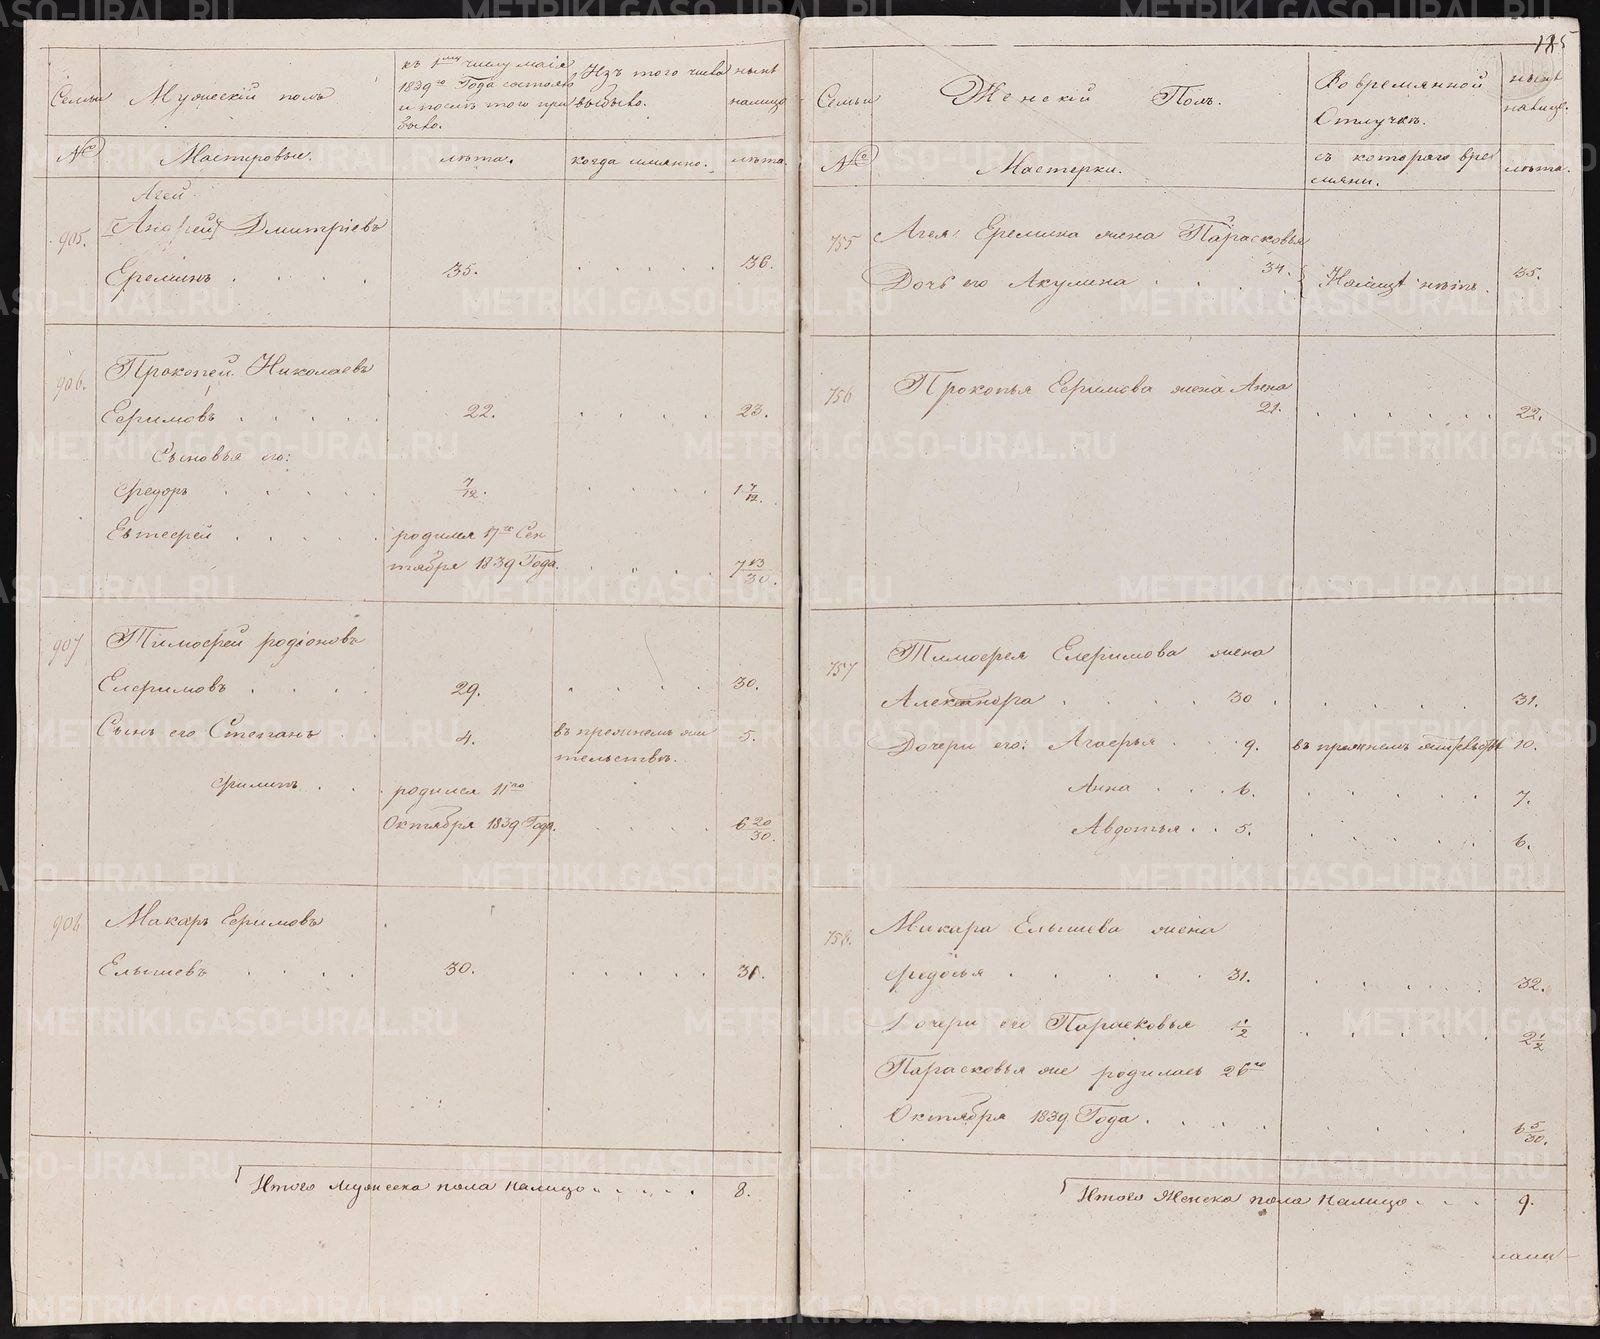 Семьи
Мужескій полъ
къ 1му числу маія
1839го Года состояло
и послѣ того при
было.
Изъ того числа
выбыло.
нынѣ
налицо
№
Мастеровые.
лѣта.
когда имянно.
лѣта.
Агей
905.
Андрей Дмитріевъ
Ереминъ . . . . 35. . . . . . 36.
906.
Прокопей Николаевъ
Ефимовъ . . . . . 22. . . . . 23.
Сыновья его:
Федоръ . . . . . 7/12. . . . . 1 7/12.
Евтефей . . . . . родился 17го Сен
тября 1839 Года. . . . . 7 13/30.
907
Тимофей родіоновъ
Елфимовъ . . . . 29. . . . . 30.
Сынъ его Степанъ . . 4. въ прежнемъ жи 5.
тельствѣ.
Филипъ . . . родился 11го
Октября 1839 Года. . . . . 6 20/30.
908
Макаръ Ефимовъ
Елышевъ . . . . 30. . . . . . 31.
Итого Мужеска пола налицо . . . . . 8.
185
Семьи
Женскій Полъ.
Во времянной
Отлучкѣ.
нынѣ
налице.
№
Мастерки.
съ котораго вре
мяни.
лѣта.
755
Агея Еремина жена Парасковья
34. 35.
Дочь его Акулина . . . . Налицѣ нѣтъ.
756
Прокопья Ефимова жена Анна
21. . . . . . . 22.
757
Тимофея Елфимова жена
Александра . . . . 30 . . . . . . 31.
Дочери его: Агафья . . 9. въ прежнемъ 10.
Анна . . . 6. . . . . . 7.
Авдотья . . 5. . . . . . 6.
758.
Макара Елышева жена
Федосья . . . . . 31. . . . . . 32.
Дочери его Парасковья 1 1/2 . . . . . 2 1/2
Парасковья же родилась 26го
Октября 1839 Года . . . . . . . . 6 5/30.
Итого Женска пола налицо . . . 9.